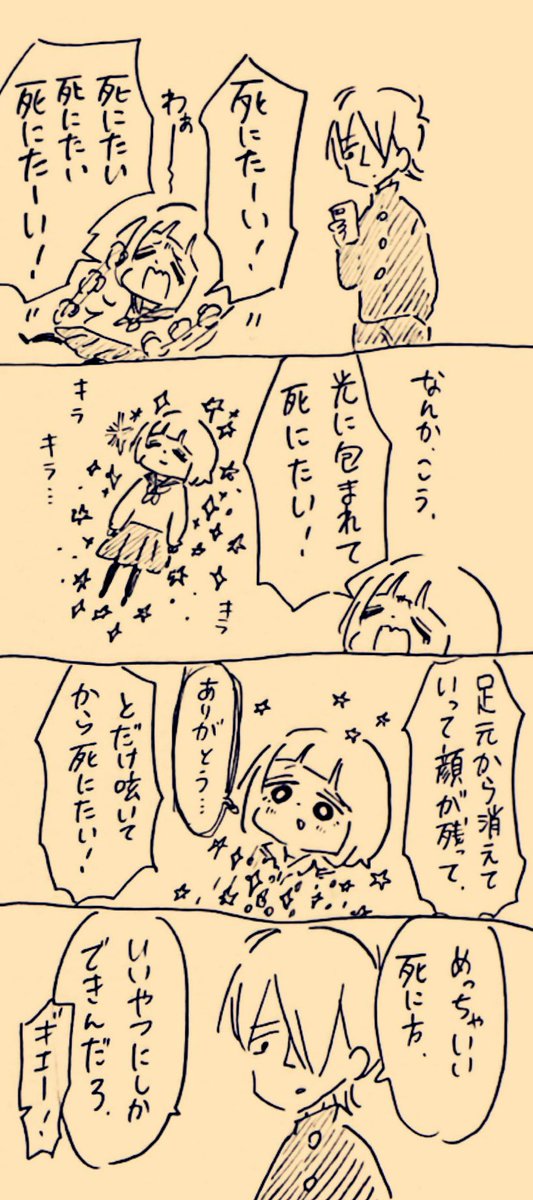 死にたーい!
わぁー
死にたい
死にたい
死にたーい!
なんか、こう、
光に包まれて
死にたい!
キラ
キラ…
キラ
足元から消えて
いって顔が残って、
ありがとう…
とだけ呟いて
から死にたい!
めっちゃいい
死に方、
いいやつにしか
できんだろ、
ギエー!